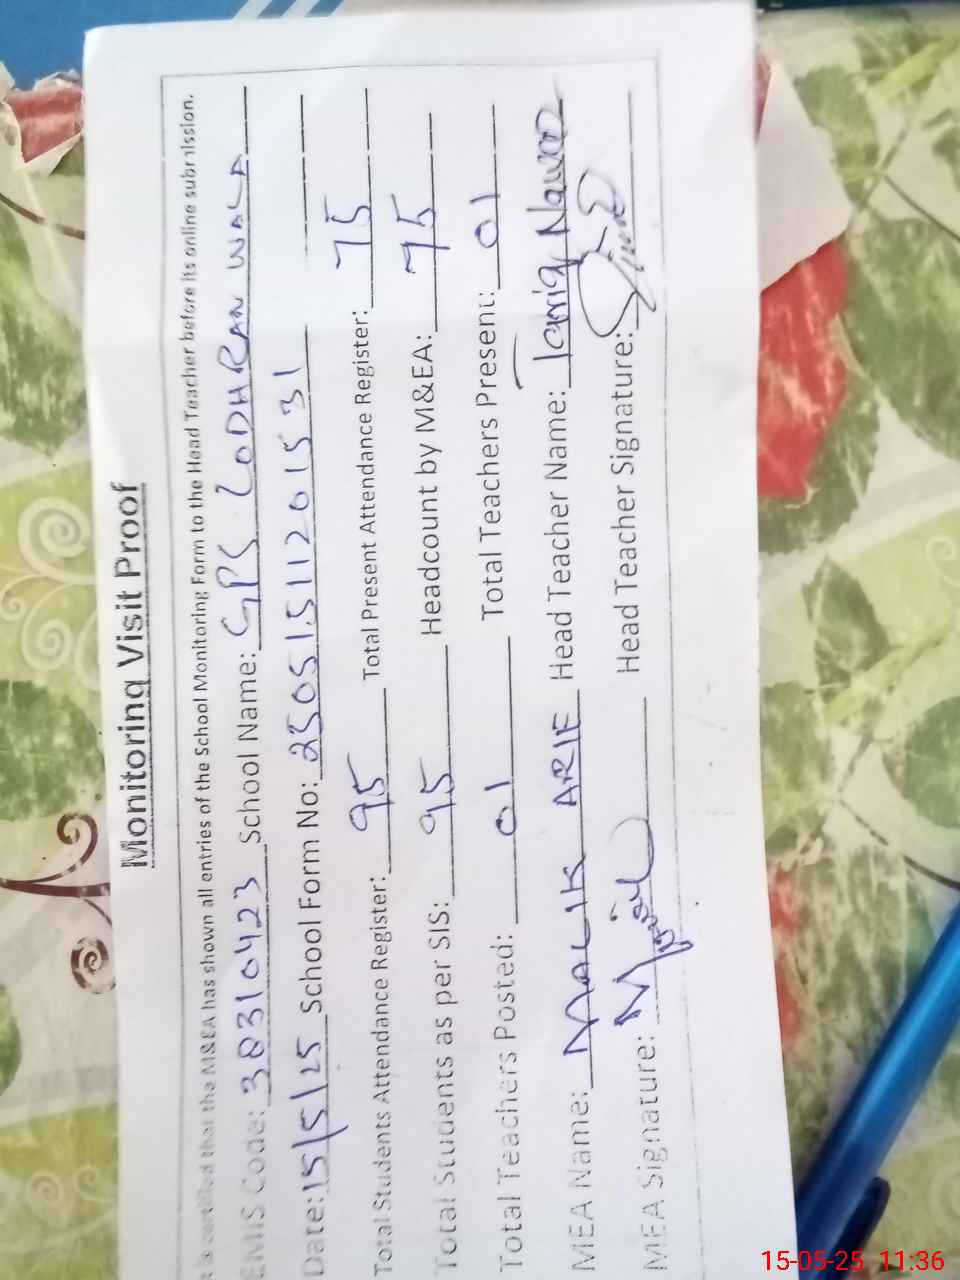 Monitoring Visit Proof
It is certified that the M&EA has shown all entries of the School Monitoring Form to the Head Teacher before its online submission.
EMIS Code: 38310423 School Name: GPS LODHRAN WALA
Date: 15/5/25 School Form No: 25051511201531
Total Students Attendance Register: 95 Total Present Attendance Register: 75
Total Students as per SIS: 95 Headcount by M&EA: 75
Total Teachers Posted: 01 Total Teachers Present: 01
MEA Name: MALIK ARIF Head Teacher Name: Tariq Nawaz
MEA Signature: Head Teacher Signature:
15-05-25 11:36